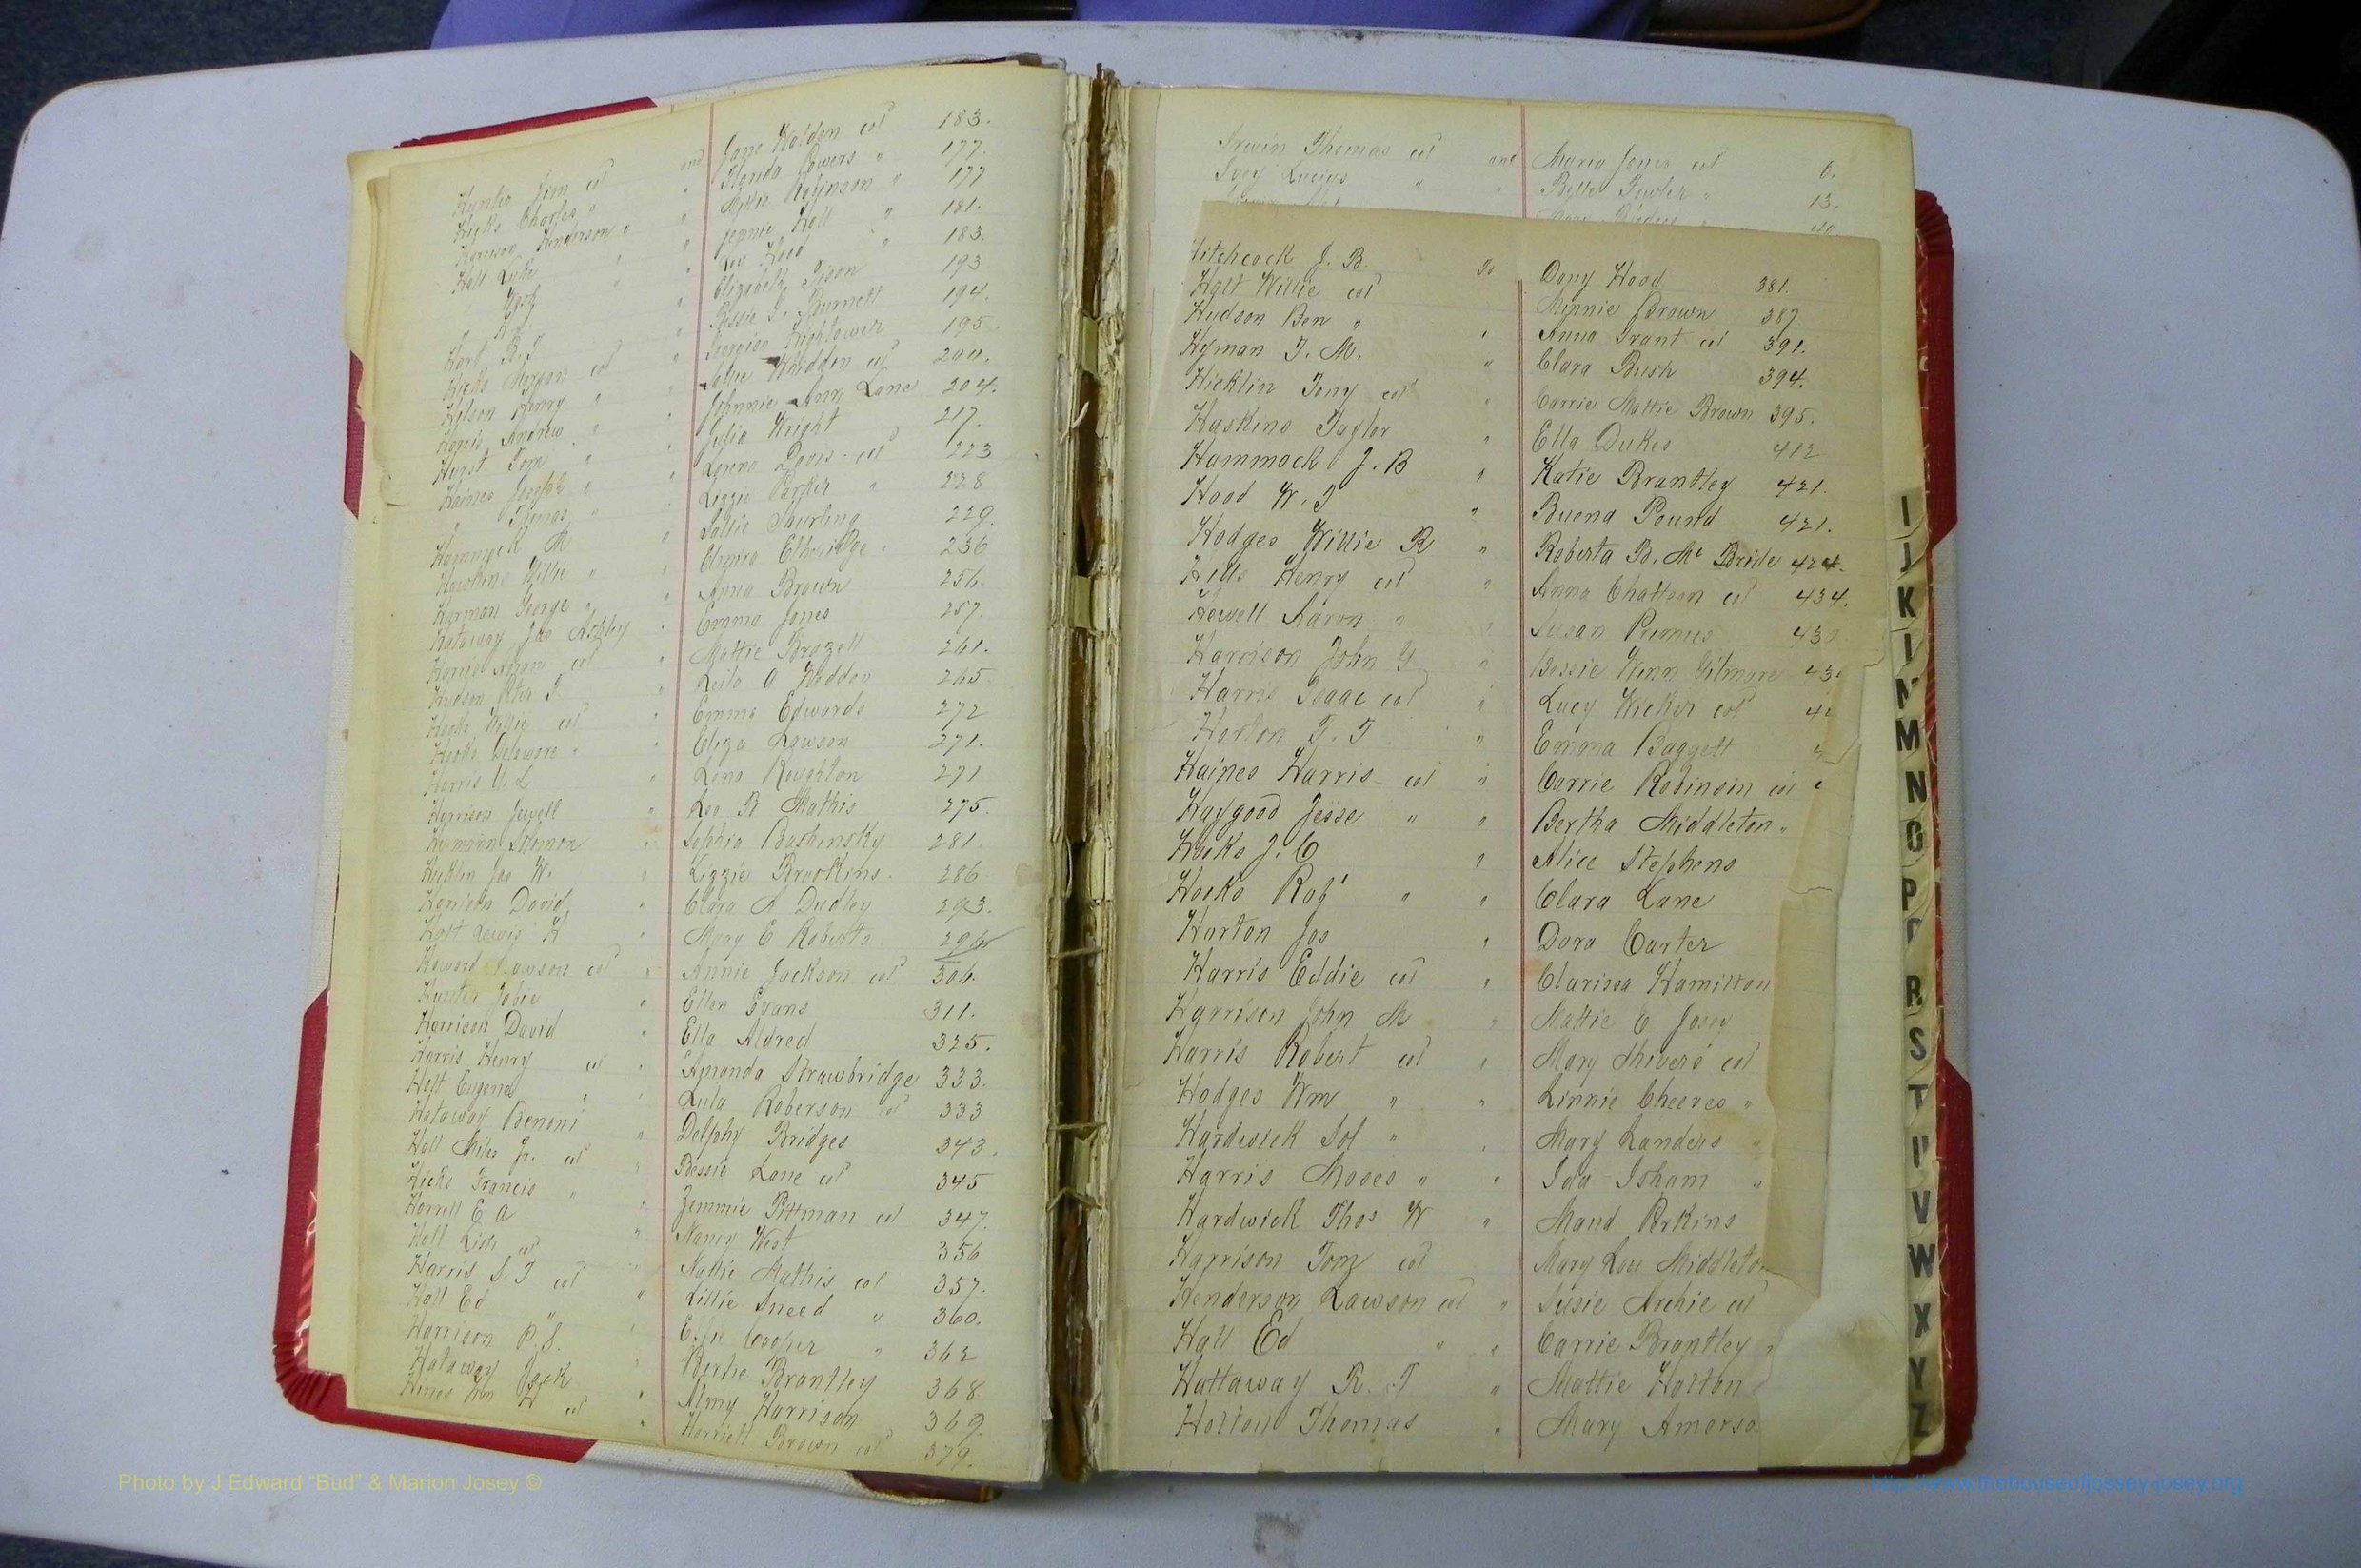 Hunter Jim col and Jane Walden col 183.
Hicks Charles " " Florida Powers " 177.
Harrison Henderson " " Mittie Robinson " 177
Holt Luke " " Jennie Holt " 181.
" " 183.
Elizabeth Tison 193
Hart R. T " Bessie G. Burnett 194.
Hicks Morgan col " Georgia Hightower 195.
Henry " " Sallie Whidden col 200.
Harris Andrew " " Johnnie Ann Lane 204.
Hurst Tom " " Julia Wright 217.
Haines Joseph " " Lorena Davis col 223
" Thomas " " Lizzie Parker " 228
Hammock M " Sallie Spurling 229.
Hawkins Willie " " Elmira Etheridge 236
Harman George " " Anna Brown 256.
Hataway Jno Ashley " Emma Jones 257.
Harris col " Mattie Brazell 261.
Hudson T " Leila A Whidden 265
Hooks Willie col " Emma Edwards 272
Hooks Delaware " " Eliza Lawson 271.
Harris " Lena Roughton 271
Harrison Jewell " Lea R Mathis 275.
Hermann Solomon " Sophia Bashinsky 281
Hicklin Jas W. " Lizzie Brookins. 286
Harrison David " Clara A Dudley 293.
Holt Lewis H " Mary E Roberts 296
Howard Dawson col " Annie Jackson col 306.
Hunter Jobie " Ellen Evans 311.
Harrison David " Ella Aldred 325.
Harris Henry col " Amanda Strawbridge 333.
Holt Eugene " " Lula Roberson col 333
Hataway Benoni " Delphy Bridges 343.
Hall Miles Jr. col " Bessie Lane col 345
Hicks Francis " " Jimmie Pittman col 347.
Harrell E A " Nancy West 356
Hall Lish col " Mattie Mathis col 357.
Harris S. T col " Lillie Sneed " 360.
Hall Ed " " Effie Cooper " 362
Harrison P. S. " Bertie Brantley 368
Hataway Jack " Almy Harrison 369.
Hines Wm H col " Harriett Brown col 379.
Irwin Thomas col and Maria Jones col 6.
Ivey Lucius " " Belle Fowler " 13.
Hitchcock J. B. To Dony Hood 381.
Holt Willie col Minnie Brown 387
Hudson Ben " " Anna Grant col 391.
Hyman T. M. " Clara Bush 394.
Hicklin Tony col " Carrie Mattie Brown 395.
Haskins Taylor " Ella Dukes 412
Hammock J. B " Katie Brantley 421.
Hood W. T " Buena Pound 421.
Hodges Willie R " Roberta B. Mc Bride 424.
Hills Henry col " Anna Chatteon col 434.
Hewell Aaron " " Susan Primus 43
Harrison John Y " Bessie Winn Gilmore 43
Harris Isaac col " Lucy Wicker col 4
Horton T. T " Emma Baggett
Haines Harris col " Carrie Robinson col
Haygood Jesse " " Bertha Middleton "
Hooks J. C " Alice Stephens
Hooks Robt " " Clara Lane
Horton Jos " Dora Carter
Harris Eddie col " Clarissa Hamilton
Harrison John M " Mattie E Josey
Harris Robert col " Mary Shivers col
Hodges Wm " " Linnie Cheeves "
Hardwick Sol " " Mary Landers "
Harris Moses " " Ida Isham "
Hardwick Thos W " Maud Perkins
Harrison Tom col Mary Lou Middleto
Henderson Lawson col " Susie Archie col
Hall Ed " " Carrie Brantley "
Hattaway R. T " Mattie Holton
Holton Thomas " Mary Amerso
I
J
K
M
N
O
P
R
S
T
U
V
W
X
Y
Z
Photo by J Edward “Bud” & Marion Josey ©
http://www.thehouseofjossey-josey.org